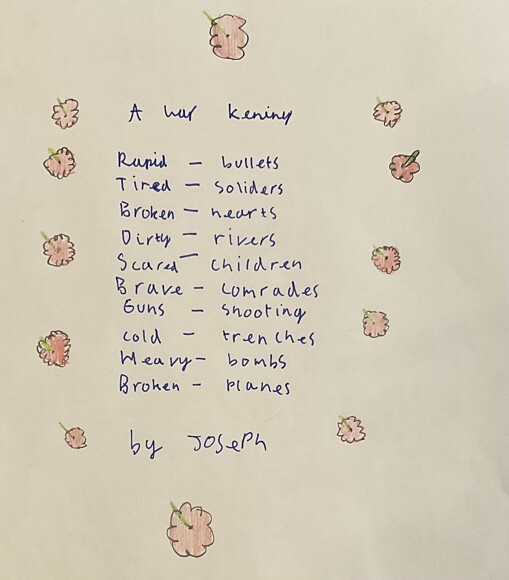 A war Keniny
Rapid – bullets
Tired – soliders
Broken – hearts
Dirty – rivers
Scared – children
Brave – comrades
Guns – shooting
cold – trenches
Heavy – bombs
Broken – planes
by Joseph